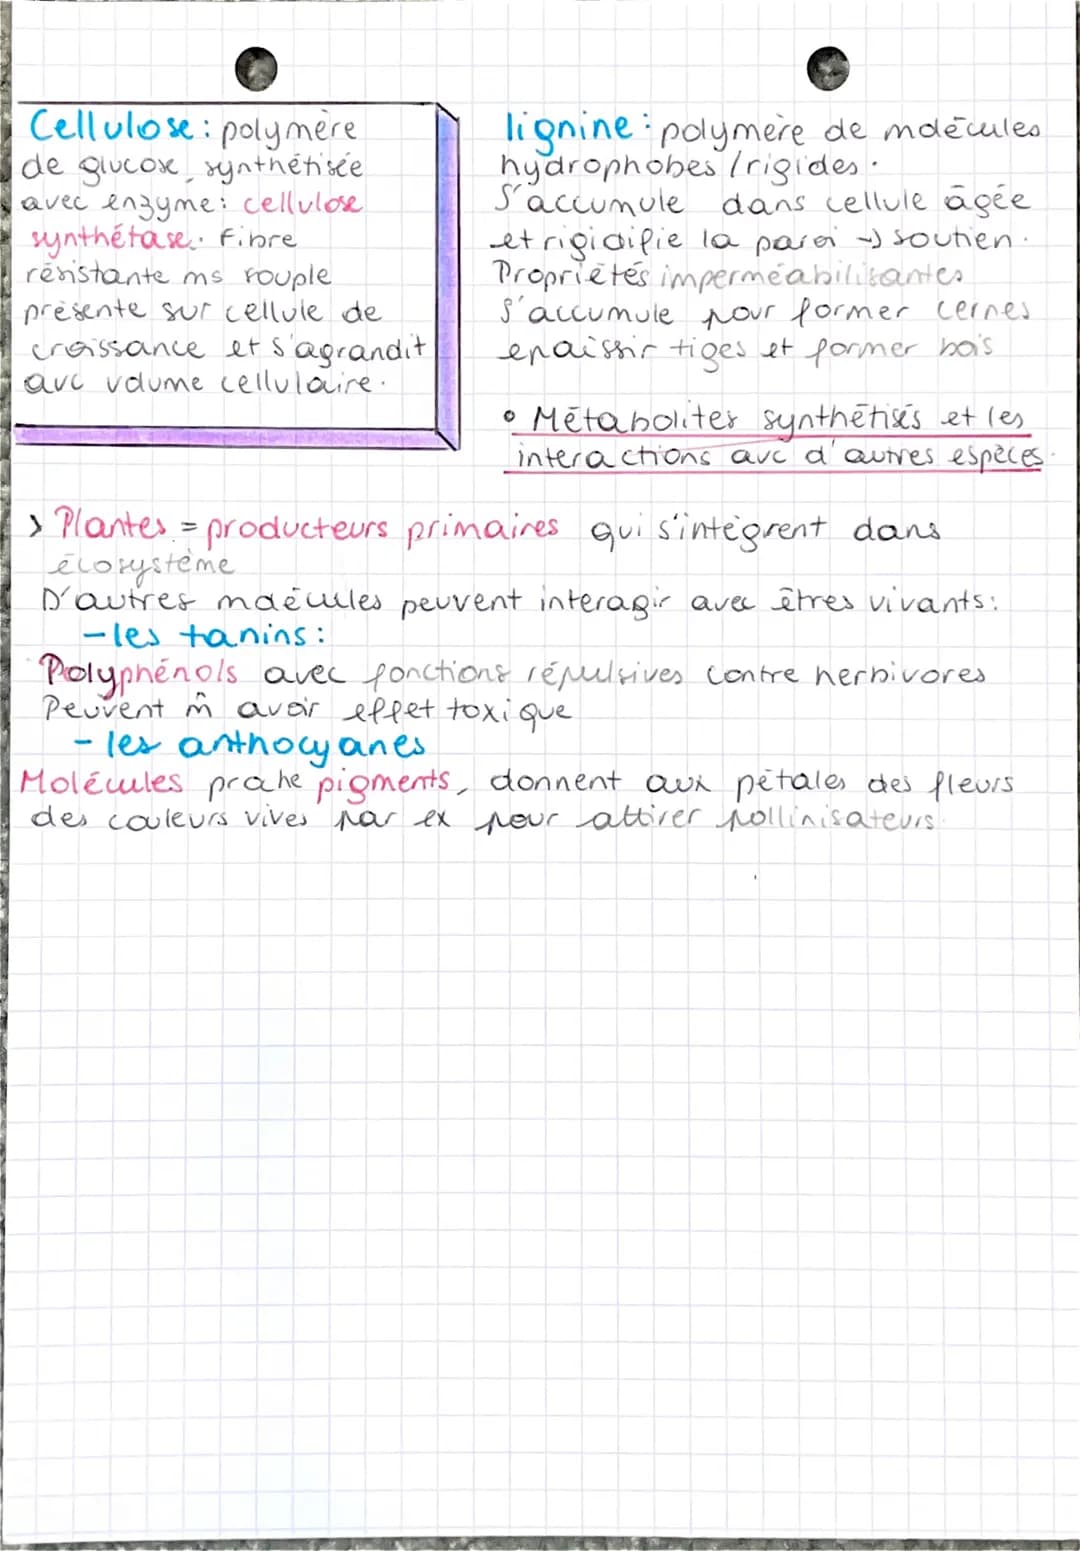 Cellulose : polymère
de glucose, synthétisée
avec enzyme : cellulose
synthétase. Fibre
résistante ms souple
présente sur cellule de
croissance et s'agrandit
avc volume cellulaire.
lignine : polymère de molécules
hydrophobes / rigides.
S'accumule dans cellule âgée
et rigidifie la paroi → soutien.
Propriétés imperméabilisantes
S'accumule pour former cernes
epaissir tiges et former bois
• Métabolites synthétisés et les
interactions avc d'autres espèces.
> Plantes = producteurs primaires qui s'intègrent dans
écosystème
D'autres molécules peuvent interagir avec êtres vivants :
- les tanins :
Polyphénols avec fonctions répulsives contre herbivores
Peuvent m̂ avoir effet toxique
- les anthocyanes
Molécules proche pigments, donnent aux pétales des fleurs
des couleurs vives par ex pour attirer pollinisateurs.